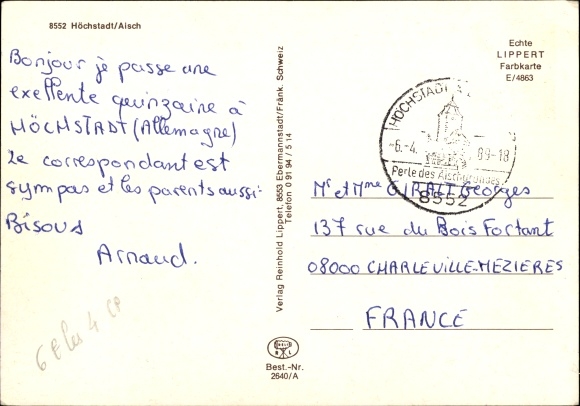 8552 Höchstadt/Aisch
Bonjour je passe une
exellente quinzaine à
HÖCHSTADT (Allemagne)
Le correspondant est
sympas et les parents aussi.
Bisous
Arnaud.
6 € les 4 CP
Verlag Reinhold Lippert, 8553 Ebermannstadt/Fränk. Schweiz
Telefon 0 91 94 / 5 14
RL
Best.-Nr.
2640/A
Echte
LIPPERT
Farbkarte
E/4863
HÖCHSTADT
-6.-4. 89-18
Perle des Aischgrundes
8552
Mr et Mme GIRALT Georges
137 rue du Bois Fortant
08000 CHARLEVILLE-MEZIERES
FRANCE